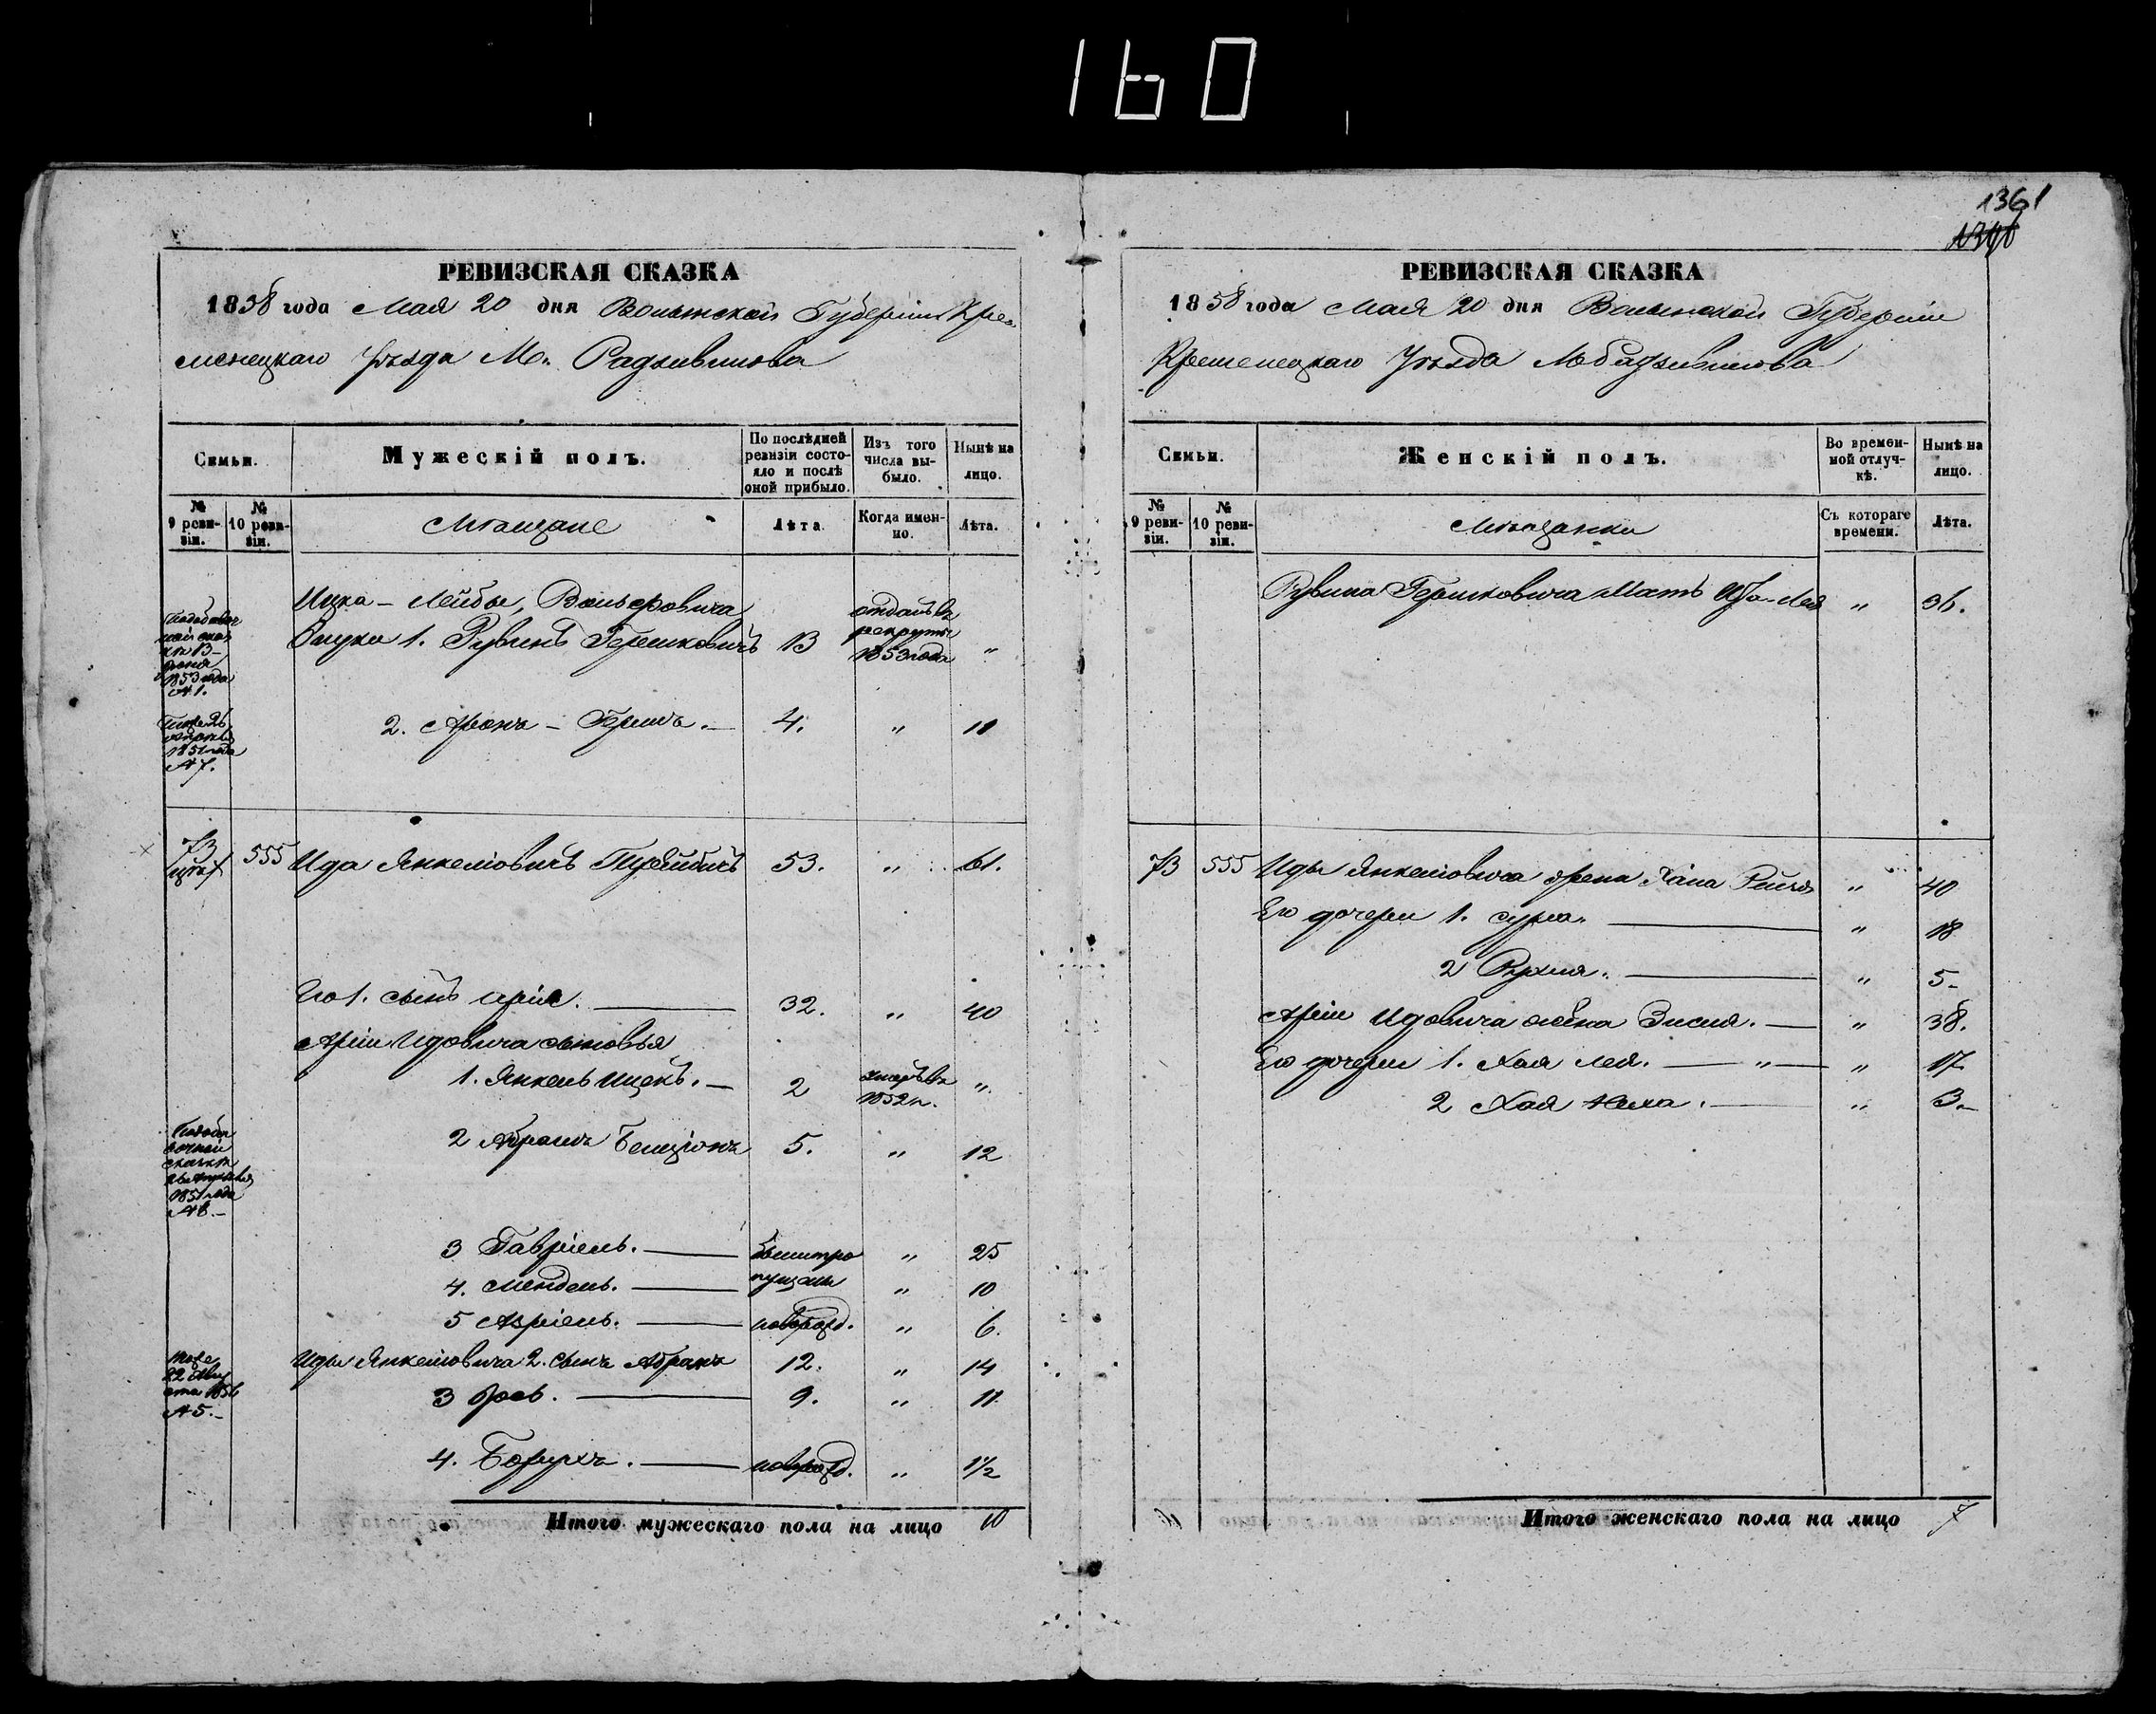 160
1361
РЕВИЗСКАЯ СКАЗКА
1858 года Мая 20 дня Волынской Губерніи Кре-
менецкаго Уѣзда М. Радзивилова
Семьи.
Мужескій полъ.
По послѣдней ревизіи состо-
яло и послѣ
оной прибыло.
Изъ того
числа вы-
было.
Нынѣ на
лицо.
№
9 реви-
зіи.
№
10 реви-
зіи.
Мѣщане
Лѣта
Когда имен-
но.
Лѣта.
Ицка - Лейбы, Вольфовича
Внуки 1. Рувинъ Гершковичъ 13 отданъ въ рекруты 1853 года "
1853 года
№ 1.
2. Аронъ - Гершъ. — 4. " 11
1851 года
№ 7.
73 555 Ида Янкелiовичъ 53. " 61.
Его 1. сынъ Арія. — 32. " 40
Аріи Идовича сыновья
1. Янкель Ицекъ. — 2 умеръ въ 1852 г. "
2 Абрамъ Бенціонъ 5. " 12
сказкѣ
1851 года
№ 6. —
3 Гавріель. — были про " 25
4. Мендель. — пущены " 10
5 Азріель. — новорожд. " 6.
Иды Янкелiовича 2. сынъ Абрамъ 12. " 14
тоже
22 Авгу
ста 1856
№ 5. —
3 — 9. " 11
4. Борухъ. — новорожд. " 1½
Итого мужескаго пола на лицо 10
РЕВИЗСКАЯ СКАЗКА
1858 года Мая 20 дня Волынской Губерніи
Кременецкаго Уѣзда М Радзивилова
Семьи.
Женскій полъ.
Во времен-
ной отлуч-
кѣ.
Нынѣ на
лицо.
№
9 реви-
зіи.
№
10 реви-
зіи.
Мѣщанки
Съ котораго
времени.
Лѣта.
Рувина Гершковича Мать " 36.
73 555 Иды Янкелiовича жена Хана Рейзя " 40
Его дочери 1. Сура. — " 18
2 Рухля. — " 5-
Аріи Идовича жена Зисля. — " 38.
Его дочери 1. Хая Лея. — " — " 17
2 Хая — " 3-
Итого женскаго пола на лицо 7